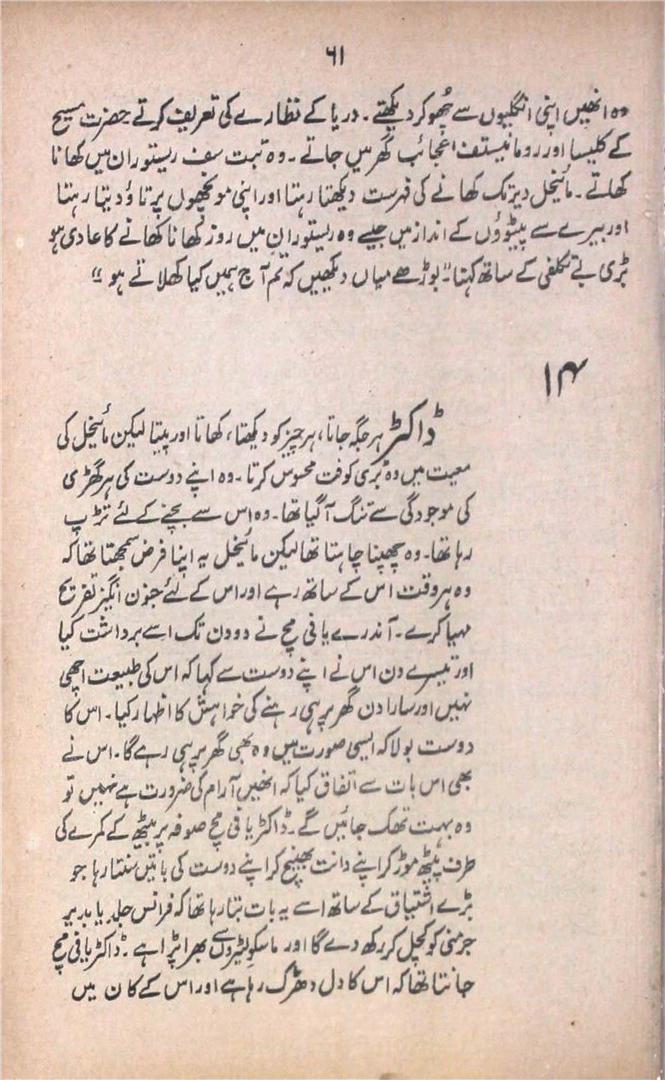 ۶۱
وہ انھیں اپنی انگلیوں سے چُھو کر دیکھتے۔ دریا کے نظارے کی تعریف کرتے حضرت مسیح
کے کلیسا اور رومانیستف اعجائب گھر میں جاتے۔ وہ تبت سف ریستوران میں کھانا
کھاتے۔ مائیخل دیر تک کھانے کی فہرست دیکھتا رہتا اور اپنی مونچھوں پر تاؤ دیتا رہتا
اور بیرے سے پیٹوؤں کے انداز میں جیسے وہ ریستوران میں روز کھانا کھانے کا عادی ہو
بڑی بے تکلفی کے ساتھ کہتا۔ "بوڑھے میاں دیکھیں کہ تم آج ہمیں کیا کھلاتے ہو"
۱۴
ڈاکٹر ہر جگہ جاتا، ہر چیز کو دیکھتا، کھاتا اور پیتا لیکن مائیخل کی
معیت میں وہ بڑی کوفت محسوس کرتا۔ وہ اپنے دوست کی ہر گھڑی
کی موجودگی سے تنگ آ گیا تھا۔ وہ اس سے بچنے کے لئے تڑپ
رہا تھا۔ وہ چھپنا چاہتا تھا لیکن مائیخل یہ اپنا فرض سمجھتا تھا کہ
وہ ہر وقت اس کے ساتھ رہے اور اس کے لئے جنون انگیز تفریح
مہیا کرے۔ آندرے یافی مچ نے دو دن تک اسے برداشت کیا
اور تیسرے دن اس نے اپنے دوست سے کہا کہ اس کی طبیعت اچھی
نہیں اور سارا دن گھر پر ہی رہنے کی خواہش کا اظہار کیا۔ اس کا
دوست بولا کہ ایسی صورت میں وہ بھی گھر پر ہی رہے گا۔ اس نے
بھی اس بات سے اتفاق کیا کہ انھیں آرام کی ضرورت ہے نہیں تو
وہ بہت تھک جائیں گے۔ ڈاکٹر یافی مچ صوفہ پر بیٹھ کے کمرے کی
طرف پیٹھ موڑ کر اپنے دانت بھینچ کر اپنے دوست کی باتیں سنتا رہا جو
بڑے اشتیاق کے ساتھ اسے یہ بات بتا رہا تھا کہ فرانس جلد یا بدیر
جرمنی کو کچل کر رکھ دے گا اور ماسکو لٹیروں سے بھرا پڑا ہے۔ ڈاکٹر یافی مچ
جانتا تھا کہ اس کا دل دھڑک رہا ہے اور اس کے کان میں